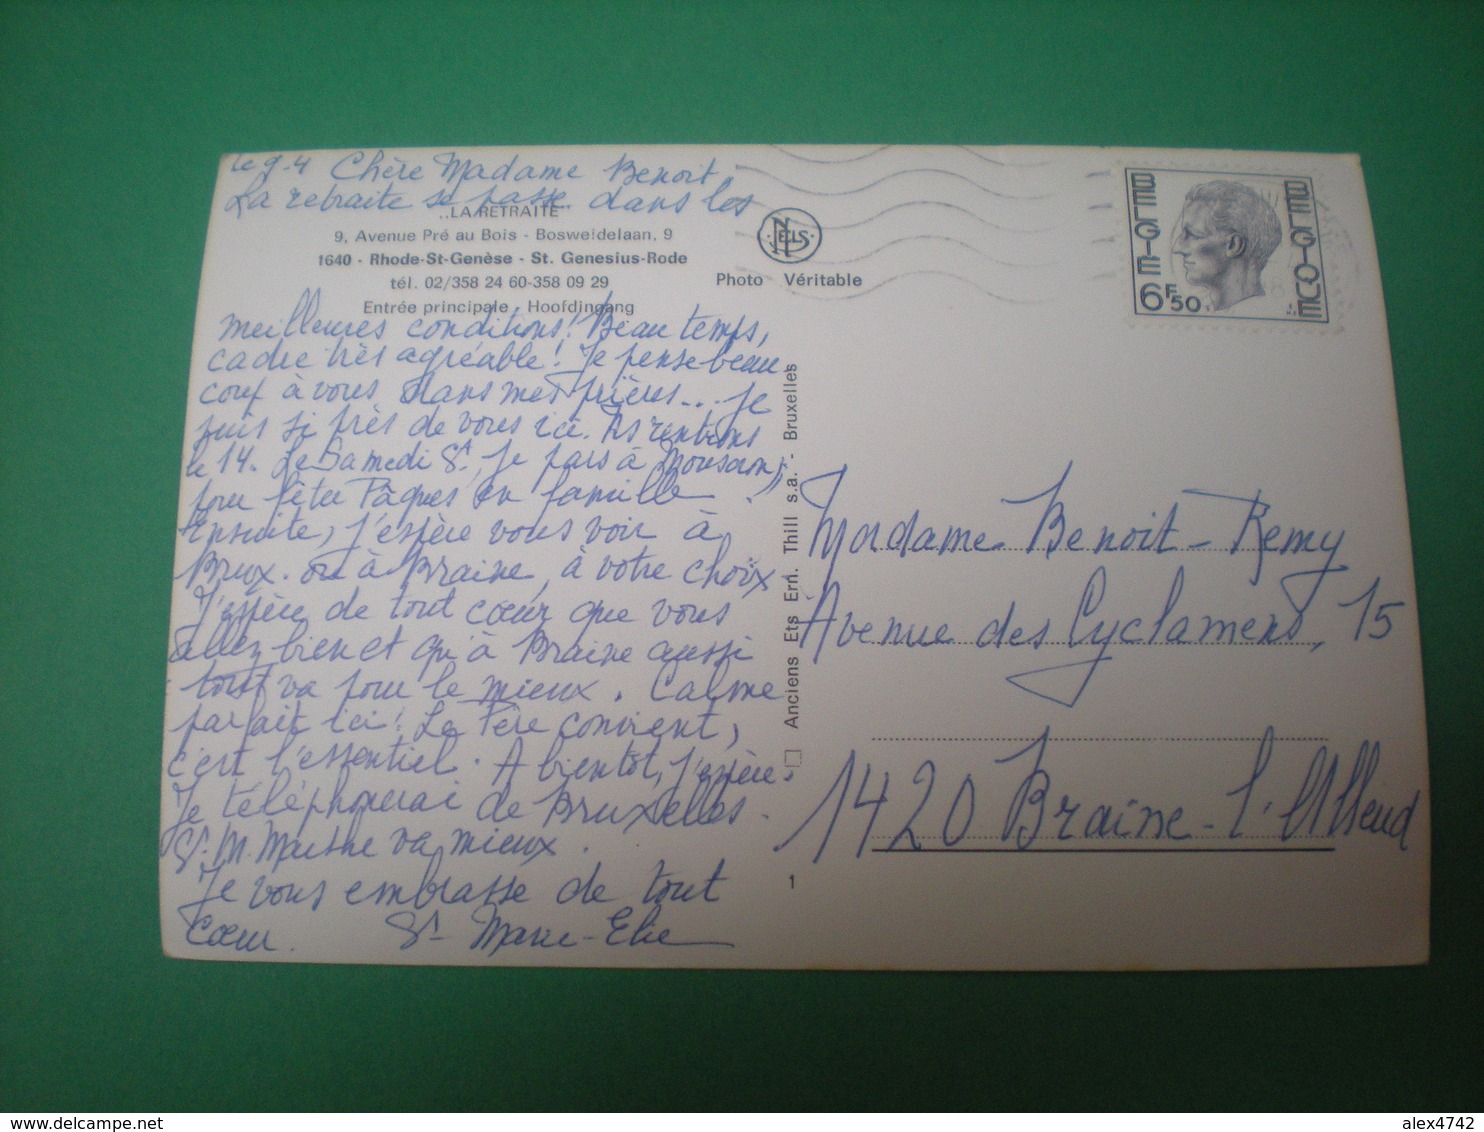 le 9-4 Chère Madame Benoit
La retraite se passe dans les
"LA RETRAITE"
9, Avenue Pré au Bois - Bosweidelaan, 9
1640 - Rhode-St-Genèse - St. Genesius-Rode
tél. 02/358 24 60-358 09 29
Entrée principale - Hoofdingang
meilleures conditions! Beau temps,
cadre très agréable! Je pense beau
coup à vous dans mes prières... Je
suis si près de vous ici. Ns rentrons
le 14. Le Samedi St, je pars à Mouscron,
pour fêter Pâques en famille.
Ensuite, j'espère vous voir à
Brux. ou à Braine, à votre choix
J'espère de tout cœur que vous
allez bien et qu'à Braine aussi
tout va pour le mieux. Calme
parfait ici! Le Père convient,
c'est l'essentiel. A bientôt, j'espère.
Je téléphonerai de Bruxelles.
Sr M. Marthe va mieux.
Je vous embrasse de tout
cœur. Sr Marie-Elie
NELS
Photo Véritable
Anciens Ets Ern. Thill s.a. - Bruxelles
1
BELGIE
BELGIQUE
6F50
Madame Benoit-Remy
Avenue des Cyclamens, 15
1420 Braine-l'Alleud
delcampe.net
alex4742